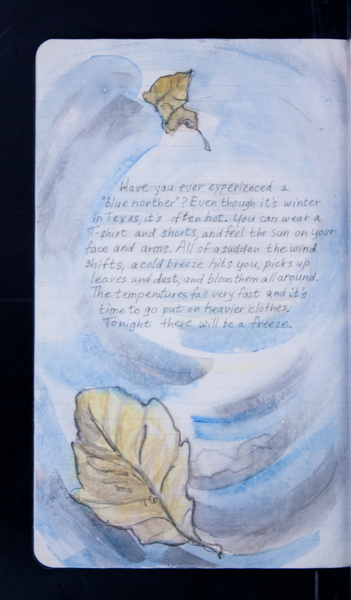 Have you ever experienced a
"blue norther"? Even though it's winter
in Texas, it's often hot. You can wear a
T-shirt and shorts, and feel the sun on your
face and arms. All of a sudden the wind
shifts, a cold breeze hits you, picks up
leaves and dust, and blows them all around.
The temperatures fall very fast and it's
time to go put on heavier clothes.
Tonight there will be a freeze.